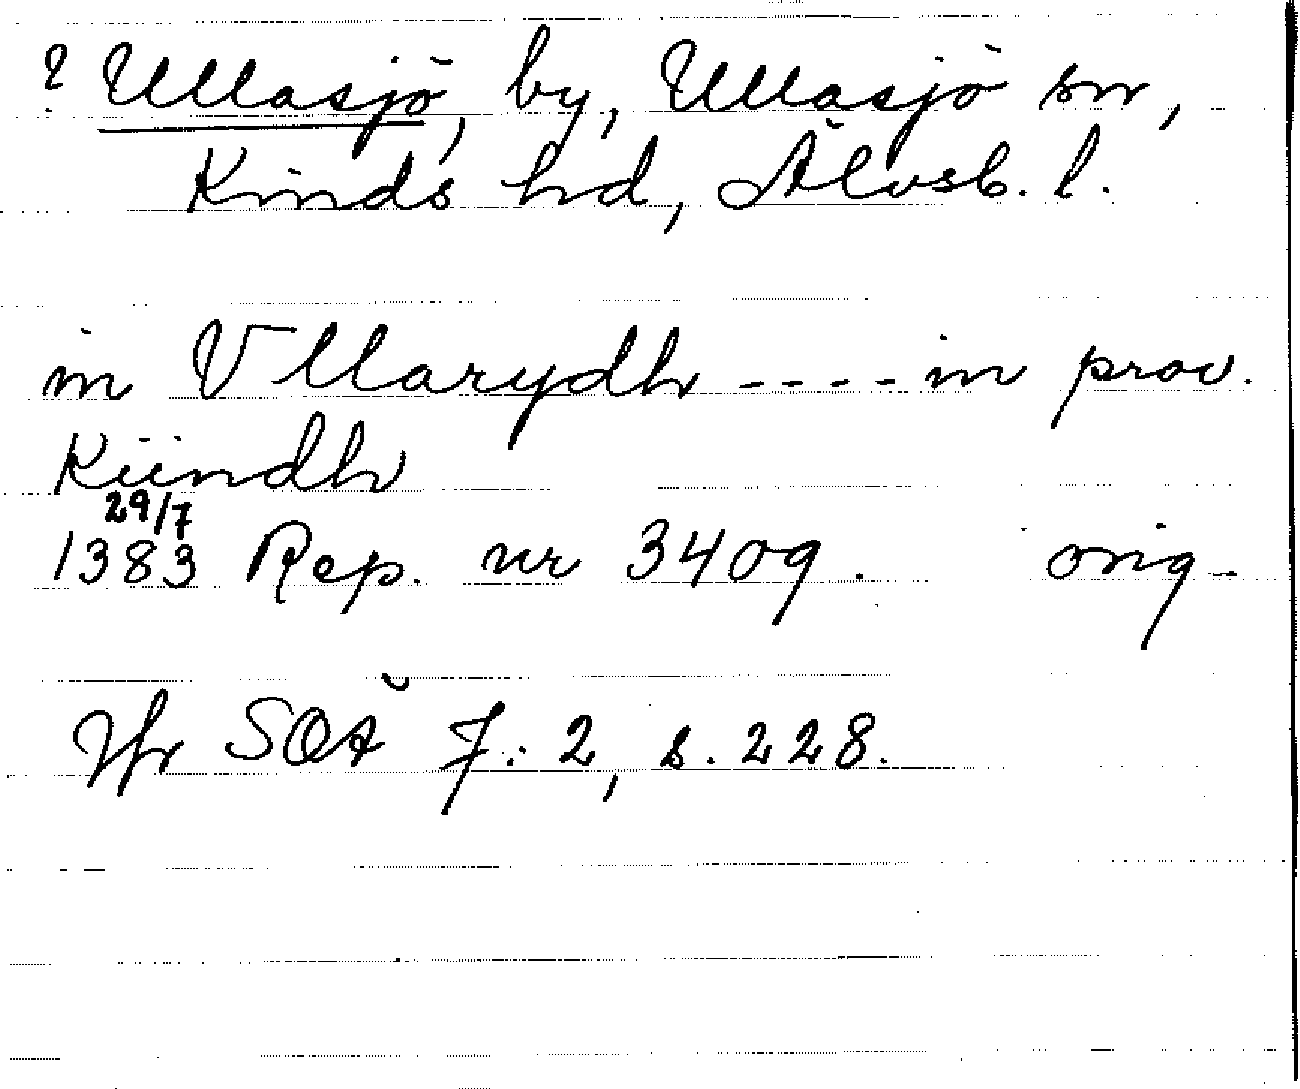 ? Ullasjö, by, Ullasjö sn,
Kinds hd, Älvsb. l.
in Vllarydh ---- in prov.
Kiindh
29/7
1383 Rep. nr 3409. orig.
Jfr SOÄ 7:2, s. 228.